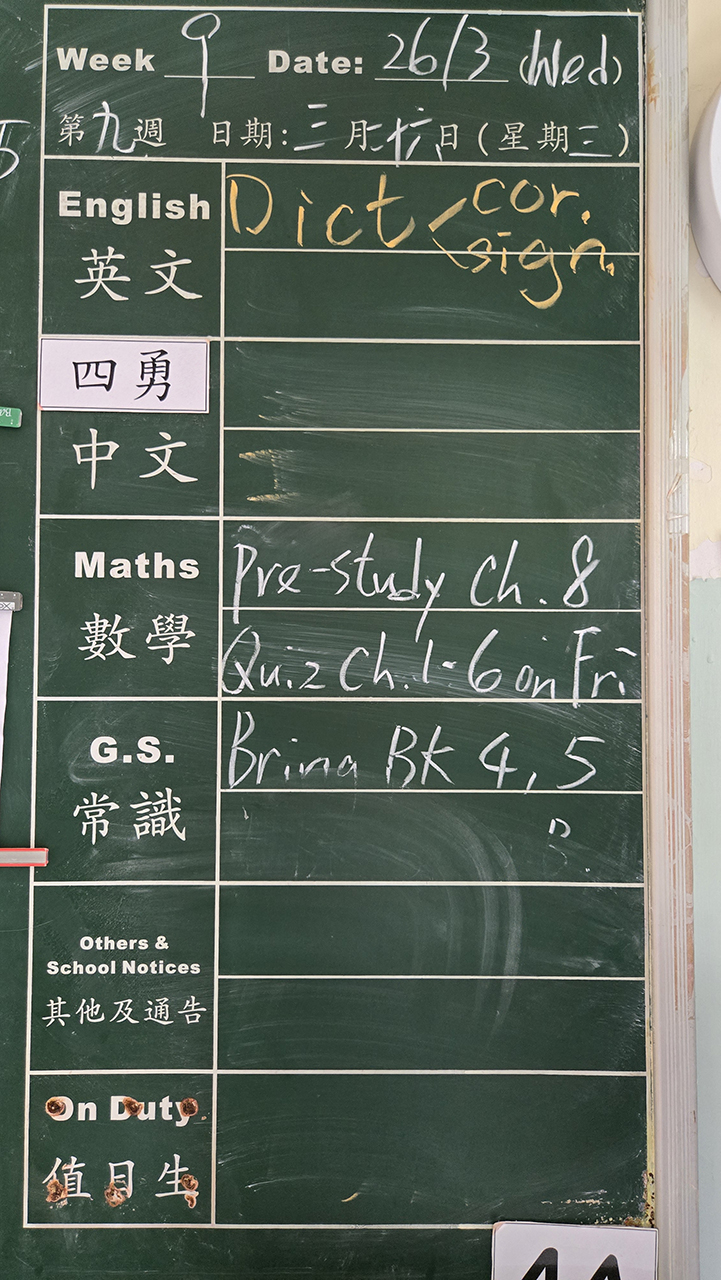 Week 9 Date: 26/3 (Wed)
第九週 日期:三月廿六日(星期三)
English
Dict < cor.
sign.
英文
四勇
中文
Maths
Pre-study Ch. 8
數學
Quiz Ch. 1-6 on Fri
G.S.
Bring Bk 4, 5
常識
Others &
School Notices
其他及通告
On Duty
值日生